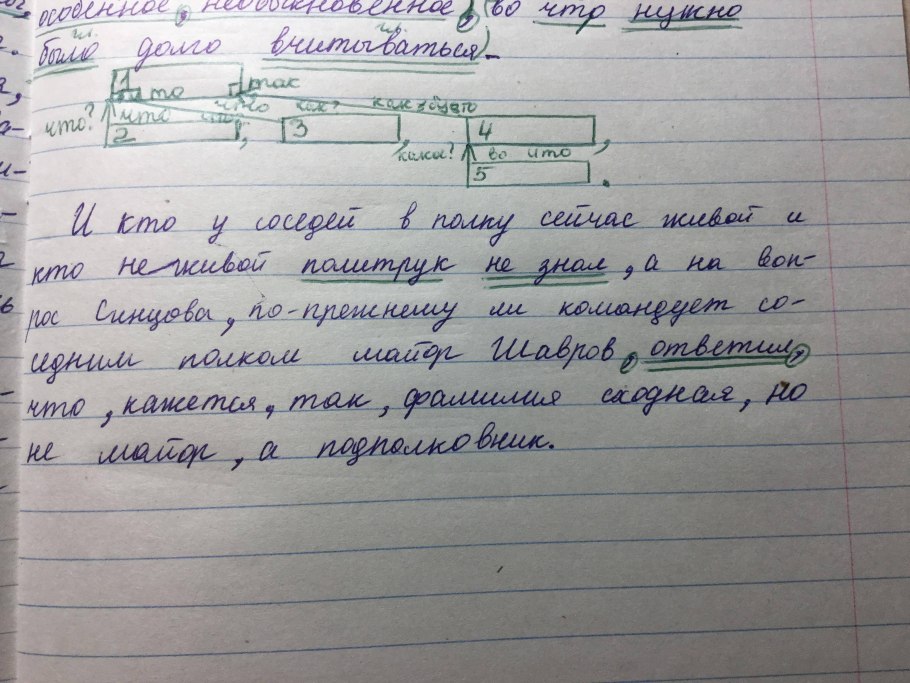 особенное, необыкновенное, во что нужно
было долго вчитываться).
1 то так
что? что что как? как будто
2 , 3 , 4 ,
какое? во что
5 .
И кто у соседей в полку сейчас живой и
кто не живой политрук не знал, а на воп-
рос Синцова, по-прежнему ли командует со-
седним полком майор Шавров, ответил,
что, кажется, так, фамилия сходная, но
не майор, а подполковник.